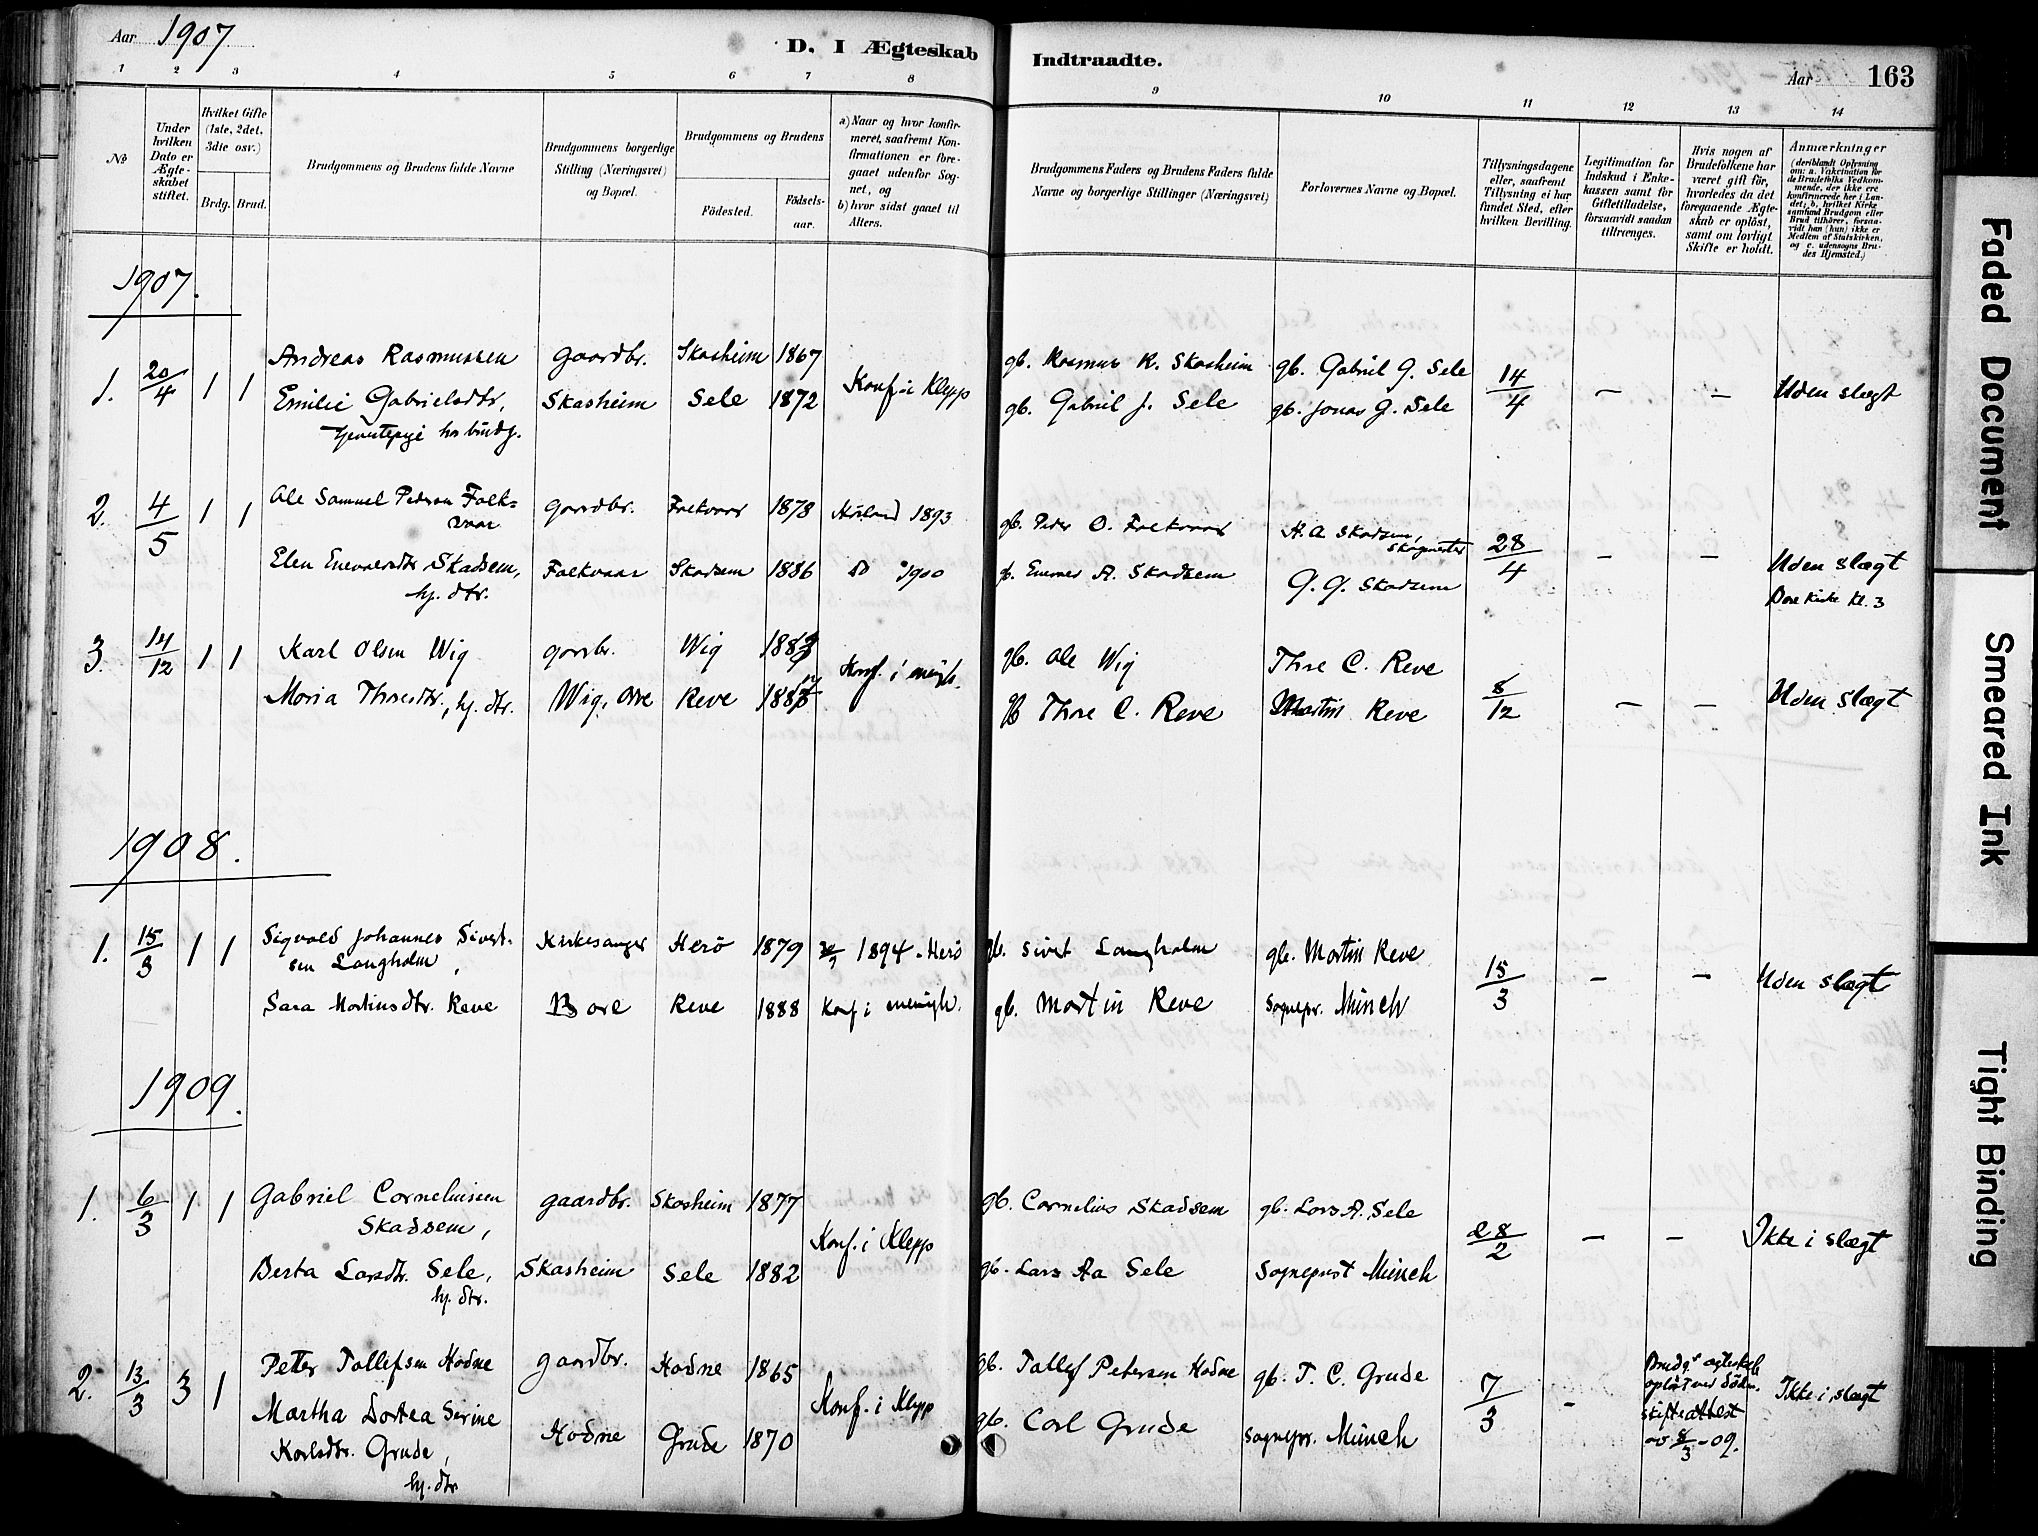 Aar 1907
D. I Ægteskab Indtraadte.
Aar 163
1 2 3 4 5 6 7 8 9 10 11 12 13 14
No
Under hvilken Dato er Ægteskabet stiftet.
Hvilket Gifte (1ste, 2det, 3die osv.)
Brdg. Brud.
Brudgommens og Brudens fulde Navne
Brudgommens borgerlige Stilling (Næringsvei) og Bopæl.
Brudgommens og Brudens
Födested.
Födselsaar.
a) Naar og hvor konfirmeret, saafremt Konfirmationen er foregaaet udenfor Sognet, og
b) hvor sidst gaaet til Alters.
Brudgommens Faders og Brudens Faders fulde Navne og borgerlige Stillinger (Næringsvei)
Forlovernes Navne og Bopæl.
Tillysningsdagene eller, saafremt Tillysning ei har fundet Sted, efter hvilken Bevilling.
Legitimation for Indskud i Enkekassen samt for Giftetilladelse, forsaavidt saadan tiltrænges.
Hvis nogen af Brudefolkene har været gift för, hvorledes da det foregaaende Ægteskab er oplöst, samt om lovligt Skifte er holdt.
Anmærkninger
(deriblandt Oplysning om: a. Vakcination för de Brudefolks Vedkommende, der ikke ere konfirmerede her i Landet; b. hvilket Kirkesamfund Brudgom eller Brud tilhører, forsaavidt han (hun) ikke er Medlem af Statskirken, og c. udensogns Brudes Hjemsted.)
1907.
1. 20/4 1 1 Andreas Rasmussen gaardbr. Skasheim 1867 Konf. i Klepp gb. Rasmus R. Skasheim gb. Gabriel G. Sele 14/4 — — Uden slægt
Emilie Gabrielsdtr, Skasheim Sele 1872 gb. Gabriel J. Sele gb. Jonas G. Sele
hos brudg.
2. 4/5 1 1 Ole Samuel Pedersen Folkvaar gaardbr. Folkvaar 1878 Höiland 1893 gb. Peder O. Folkvaar H. A Skadsem, 28/4 — — Uden slægt
Elen Enevaldsdtr Skadsem, Folkvaar Skadsem 1886 do 1900 A. Skadsem G. G. Skadsem Bore Kirke kl. 3
hj. dtr.
3. 14/12 1 1 Karl Olsen Wig gardbr. Wig Konf. i menigh. gb. Ole Wig Thore C. Reve 8/12 — — Uden slægt
Maria Thoresdtr., hj. dtr. Wig, Orre Reve gb Thore C. Reve Martin Reve
1908.
1. 15/3 1 1 Sigvald Johannes Sivertsen Langholm, Kirkesanger Herö 1879 1894 i Herö gb. Sivert Langholm gb. Martin Reve 15/3 — — Uden slægt
Sara Martinsdtr. Reve Bore Reve 1888 Konf i menigh. gb. Martin Reve Sognepr. Münch
1909.
1. 6/3 1 1 Gabriel Corneliussen Skadsem, gaardbr. Skasheim 1877 Konf. i Klepp gb. Cornelius Skadsem gb. Lars A. Sele 28/2 — — Ikke i slægt
Berta Larsdtr. Sele, Skasheim Sele 1882 gb. Lars Aa Sele Sogneprest Münch
hj. dtr.
2. 13/3 3 1 Peter Tollefsen Hodne gaardbr. Hodne 1865 Konf. i Klepp gb. Tollef Petersen Hodne gb. T. C. Grude 7/3 - Brudg.s egteskab opløst ved død. Skifteattest av 8/3-09. Ikke i slægt
Martha Dortea Serine Karlsdtr. Grude, Hodne Grude 1870 gb. Carl Grude Sognepr. Münch
hj. dtr
Faded Document
Smeared Ink
Tight Binding